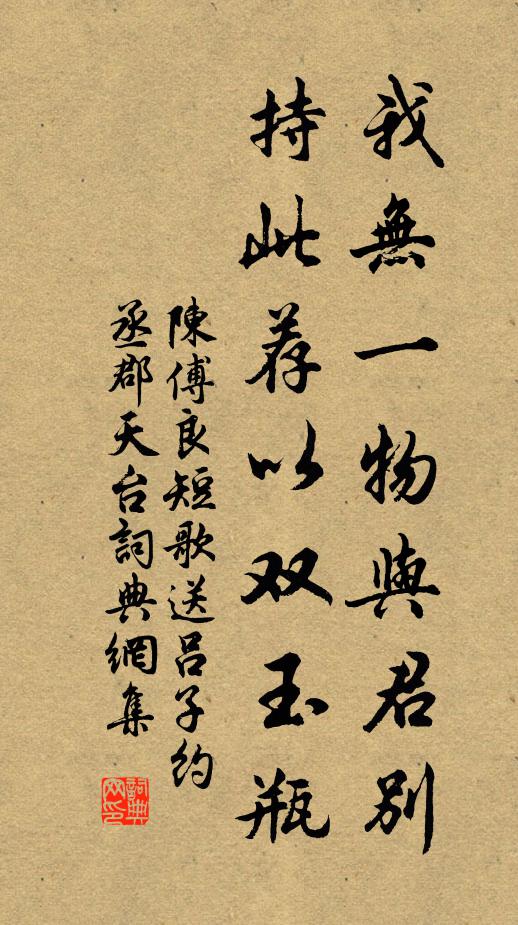 我無一物與君別
持此荐以双玉瓶
陳傅良短歌送呂子約
丞郡天台詞典網集
詞典
网印